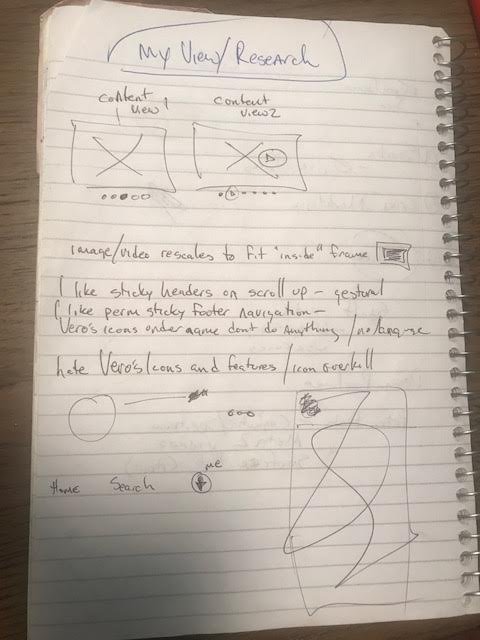 My View/Research
content view 1
content view 2
image/video rescales to fit "inside" frame
I like sticky headers on scroll up - gestural
I like perm sticky footer navigation -
Vero's icons under name dont do Anything /no
hate Vero's Icons and features /icon overkill
me
Home Search